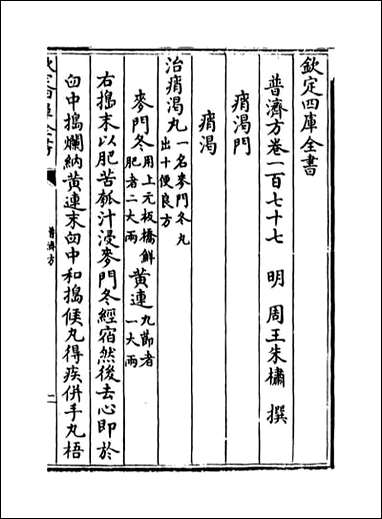 欽定四庫全書
普濟方卷一百七十七 明 周王朱橚 撰
痟渴門
痟渴
治痟渴丸一名麥門冬丸
出十便良方
麥門冬用上元板橋鮮
肥者二大兩黃連九節者
一大兩
右搗末以肥苦瓠汁浸麥門冬經宿然後去心即於
臼中搗爛納黃連末臼中和搗候丸得疾併手丸梧
普濟方
二